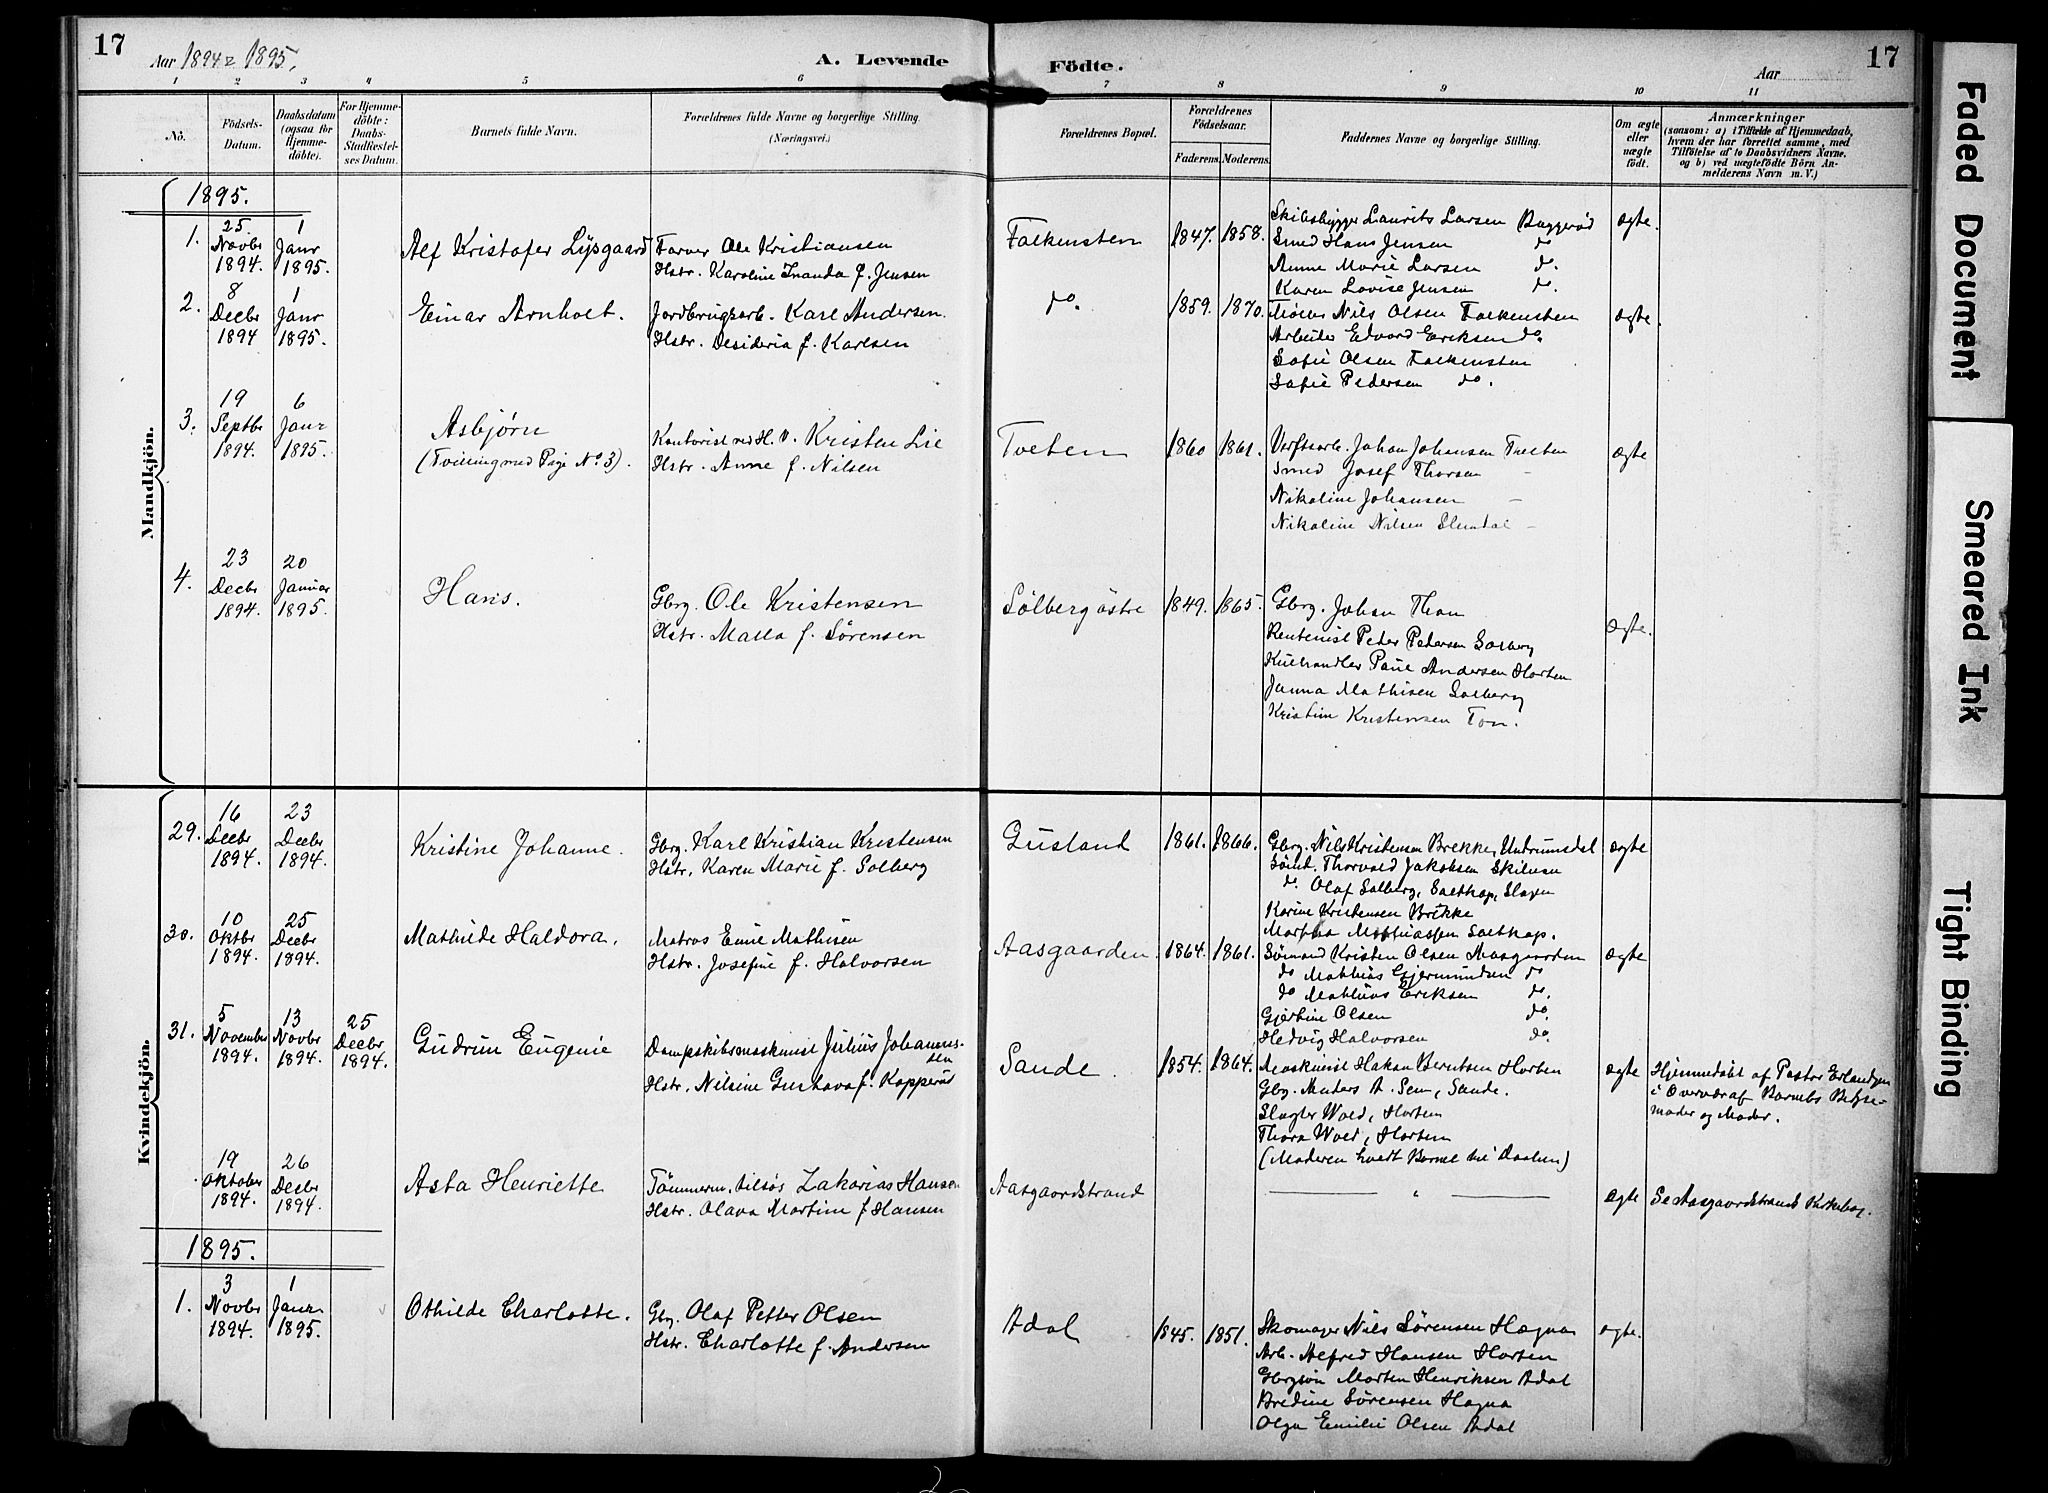 17
Aar 1894 & 1895.
A. Levende Födte.
Aar
17
1 2 3 4 5 6 7 8 9 10 11
No.
Födsels-Datum.
Daabsdatum (ogsaa for Hjemme-döbte).
For Hjemme-döbte: Daabs-Stadfæstel-ses Datum.
Barnets fulde Navn.
Forældrenes fulde Navne og borgerlige Stilling.
(Næringsvei.)
Forældrenes Bopæl.
Forældrenes Födselsaar.
Faderens. Moderens.
Faddernes Navne og borgerlige Stilling.
Om ægte eller uægte födt.
Anmærkninger
(saasom: a) i Tilfælde af Hjemmedaab, hvem der har forrettet samme, med Tilföielse af to Daabsvidners Navne, og b) ved uægtefödte Börn An-melderens Navn m. V.)
Mandkjön.
1895.
1. 25 Novbr 1894. 1 Janr 1895. Alf Kristofer Lysgaard Farver Ole Kristiansen
Hstr. Karoline Inanda f. Jensen
Falkensten 1847. 1858. Skibsbygger Laurits Larsen Baggerød ægte.
Smed Hans Jensen do
Anne Marie Larsen do.
Karen Lovise Jensen do.
2. 8 Decbr 1894 1 Janr 1895. Einar Arnholt. Jordbrugsarb. Karl Andersen.
Hstr. Desideria f. Karlsen
do. 1859. 1870. Nils Olsen Falkensten ægte.
Arbeider Edvard Eriksen do.
Sofie Olsen Falkensten
Sofie Pedersen do.
3. 19 Septbr 1894. 6 Janr 1895. Asbjørn
(Tvilling med Pige No. 3).
Kontorist ved H. V. Kristen Lie
Hstr. Anne f. Nilsen
Tveten 1860 1861. Verftsarb. Johan Johansen Tveten ægte
Smed Josef Thorsen -
Nikoline Johansen -
Nikoline Nilsen -
4. 23 Decbr 1894. 20 Januar 1895. Hans. Gbrg. Ole Kristensen
Hstr. Malla f. Sörensen
Sölberg östre 1849. 1865. Gbrg. Johan Thon ægte.
Rentenist Peter Pedersen Solberg
Paul Andersen Horten
Janna Mathisen Solberg
Kristine Kristensen Ton.
Kvindekjön.
29. 16 Decbr 1894. 23 Decbr 1894. Kristine Johanne. Gbrg. Karl Kristian Kristensen
Hstr. Karen Marie f. Solberg
Gusland 1861. 1866. Gbrg. Nils Kristensen Brekke, Undrumsdal ægte
Sömd. Thorvald Jakobsen Skilsen
do. Olaf Solberg, Saltkop, Slagen
Karine Kristensen Brekke
Martha Mathiassen Saltkop.
30. 10 Oktbr 1894. 25 Decbr 1894. Mathilde Haldora. Matros Emil Mathisen
Hstr. Josefine f. Halvorsen
Aasgaarden. 1864. 1861. Sømand Kristen Olsen Aasgaarden ægte
do Mathias Gjermundsen do
do Mathias Eriksen do.
Gjertine Olsen do.
Hedvig Halvorsen do.
31. 5 November 1894. 13 Novbr 1894. 25 Decbr 1894. Gudrun Eugenie Dampskibsmaskinist Julius Johannes-sen
Hstr. Nilsine Gustava f. Kopperud
Sande. 1854. 1864. Maskinist Hakon Berntsen Horten ægte
Gbg. A. Sem, Sande.
Slagter Wold, Horten
Thora Wold, Horten
(Moderen hvedt Barnet til Daaben)
Hjemmedöbt af Pastor Erlandsen
i Overvær af Barnets Bedste-
moder og Moder.
19 Oktober 1894. 26 Decbr 1894. Asta Henriette Tömmerm. tilsøs Zakarias Hansen
Hstr. Olava Martine f. Hansen
Aasgaardstrand ——— " ——— ægte Se Aasgaardstrands Kirkebog.
1895.
1. 3 Novbr 1894. 1 Janr 1895. Othilde Charlotte. Gbg. Olaf Petter Olsen
Hstr. Charlotte f. Andersen
Adal 1845. 1851. Skomager Nils Sørensen Hagna ægte.
Arb. Alfred Hansen Horten
Gbrgsön Morten Henriksen Adal
Bredine Sørensen Hagna
Olga Emilie Olsen Adal
Faded Document
Smeared Ink
Tight Binding